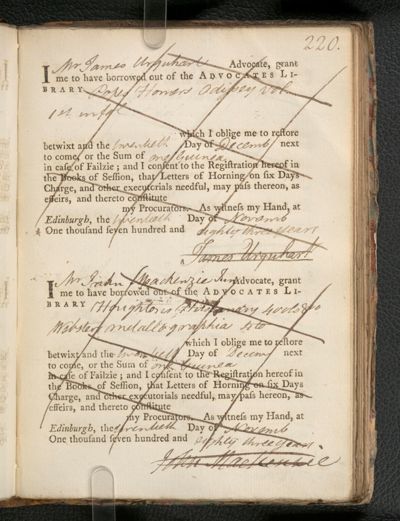 220.
I Mr James Urquhart Advocate, grant
me to have borrowed out of the ADVOCATES LI-
BRARY Popes Homers Odyssey Vol.
1st in fol
which I oblige me to reſtore
betwixt and the twentieth Day of Decemb next
to come, or the Sum of one Guinea
in caſe of Failzie; and I conſent to the Regiſtration hereof in
the Books of Seſſion, that Letters of Horning on ſix Days
Charge, and other executorials needful, may paſs hereon, as
effeirs, and thereto conſtitute
my Procurators. As witneſs my Hand, at
Edinburgh, the twentieth Day of Novemb
One thouſand ſeven hundred and eighty three years
James Urquhart
I Mr John Mackenzie Junr Advocate, grant
me to have borrowed out of the ADVOCATES LI-
BRARY
Websters metallographia 4to
which I oblige me to reſtore
betwixt and the twentieth Day of Decem next
to come, or the Sum of one Guinea
in caſe of Failzie; and I conſent to the Regiſtration hereof in
the Books of Seſſion, that Letters of Horning on ſix Days
Charge, and other executorials needful, may paſs hereon, as
effeirs, and thereto conſtitute
my Procurators. As witneſs my Hand, at
Edinburgh, the twentieth Day of Novemb
One thouſand ſeven hundred and eighty three years.
John Mackenzie